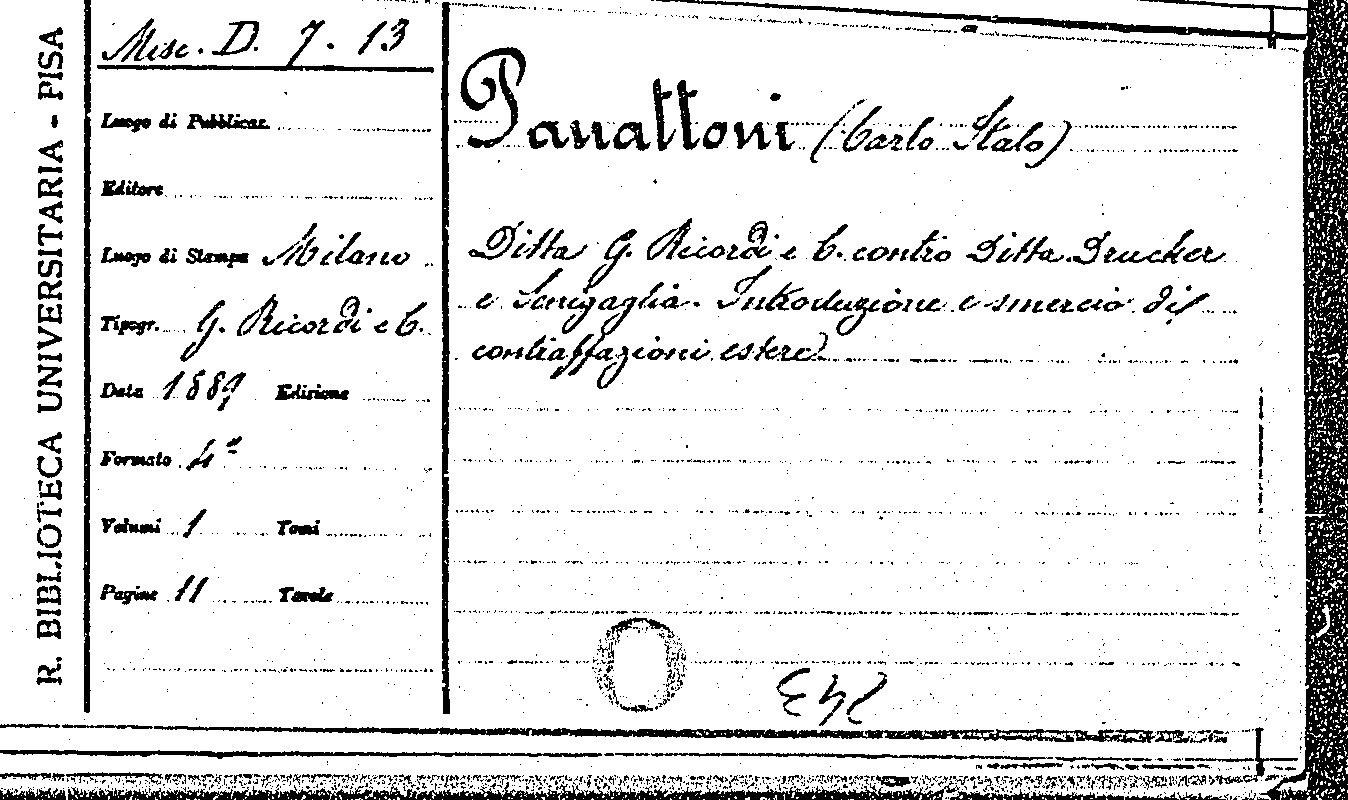 R. BIBLIOTECA UNIVERSITARIA - PISA
Misc. D. 7. 13
Luogo di Pubblicaz.
Editore
Luogo di Stampa Milano
Tipogr. G. Ricordi e C.
Data 1889 Edizione
Formato 4º
Volumi 1 Tomi
Pagine 11 Tavole
Panattoni (Carlo Italo)
Ditta G. Ricordi e C. contro Ditta Drucker
e Senigaglia. Introduzione e smercio di
contraffazioni estere
243